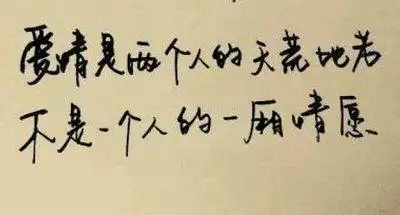 爱情是两个人的天荒地老
不是一个人的一厢情愿